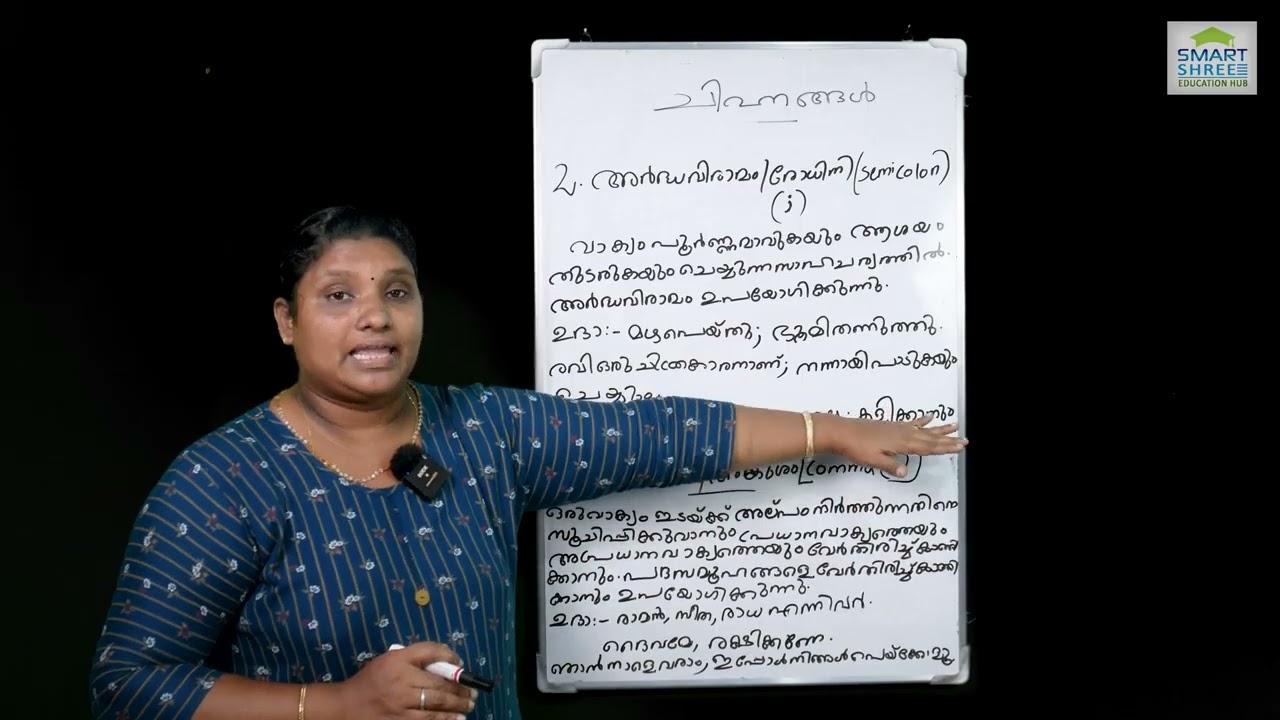 SMART
SHREE
EDUCATION HUB
ചിഹ്നങ്ങൾ
2. അർദ്ധവിരാമം/രോധിനി (semicolon)
(;)
വാക്യം പൂർണ്ണമാവുകയും ആശയം
തുടരുകയും ചെയ്യുന്ന സാഹചര്യത്തിൽ.
അർദ്ധവിരാമം ഉപയോഗിക്കുന്നു.
ഉദാ:- മഴ പെയ്തു; ഭൂമി തണുത്തു.
രവി ഒരു ചിത്രകാരനാണ്; നന്നായി പാടുകയും
ചെയ്യും
കളിക്കാനും
(comma (,)
ഒരു വാക്യം ഇടയ്ക്ക് അല്പം നിർത്തുന്നതിനെ
സൂചിപ്പിക്കുവാനും പ്രധാന വാക്യത്തെയും
അപ്രധാന വാക്യത്തെയും വേർതിരിച്ച് കാണി
ക്കാനും. പദസമൂഹങ്ങളെ വേർതിരിച്ച് കാണി
ക്കാനും ഉപയോഗിക്കുന്നു.
ഉദാ:- രാമൻ, സീത, രാധ എന്നിവർ.
ദൈവമേ, രക്ഷിക്കണേ.
ഞാൻ നാളെ വരാം, ഇപ്പോൾ നിങ്ങൾ പൊയ്ക്കോളൂ